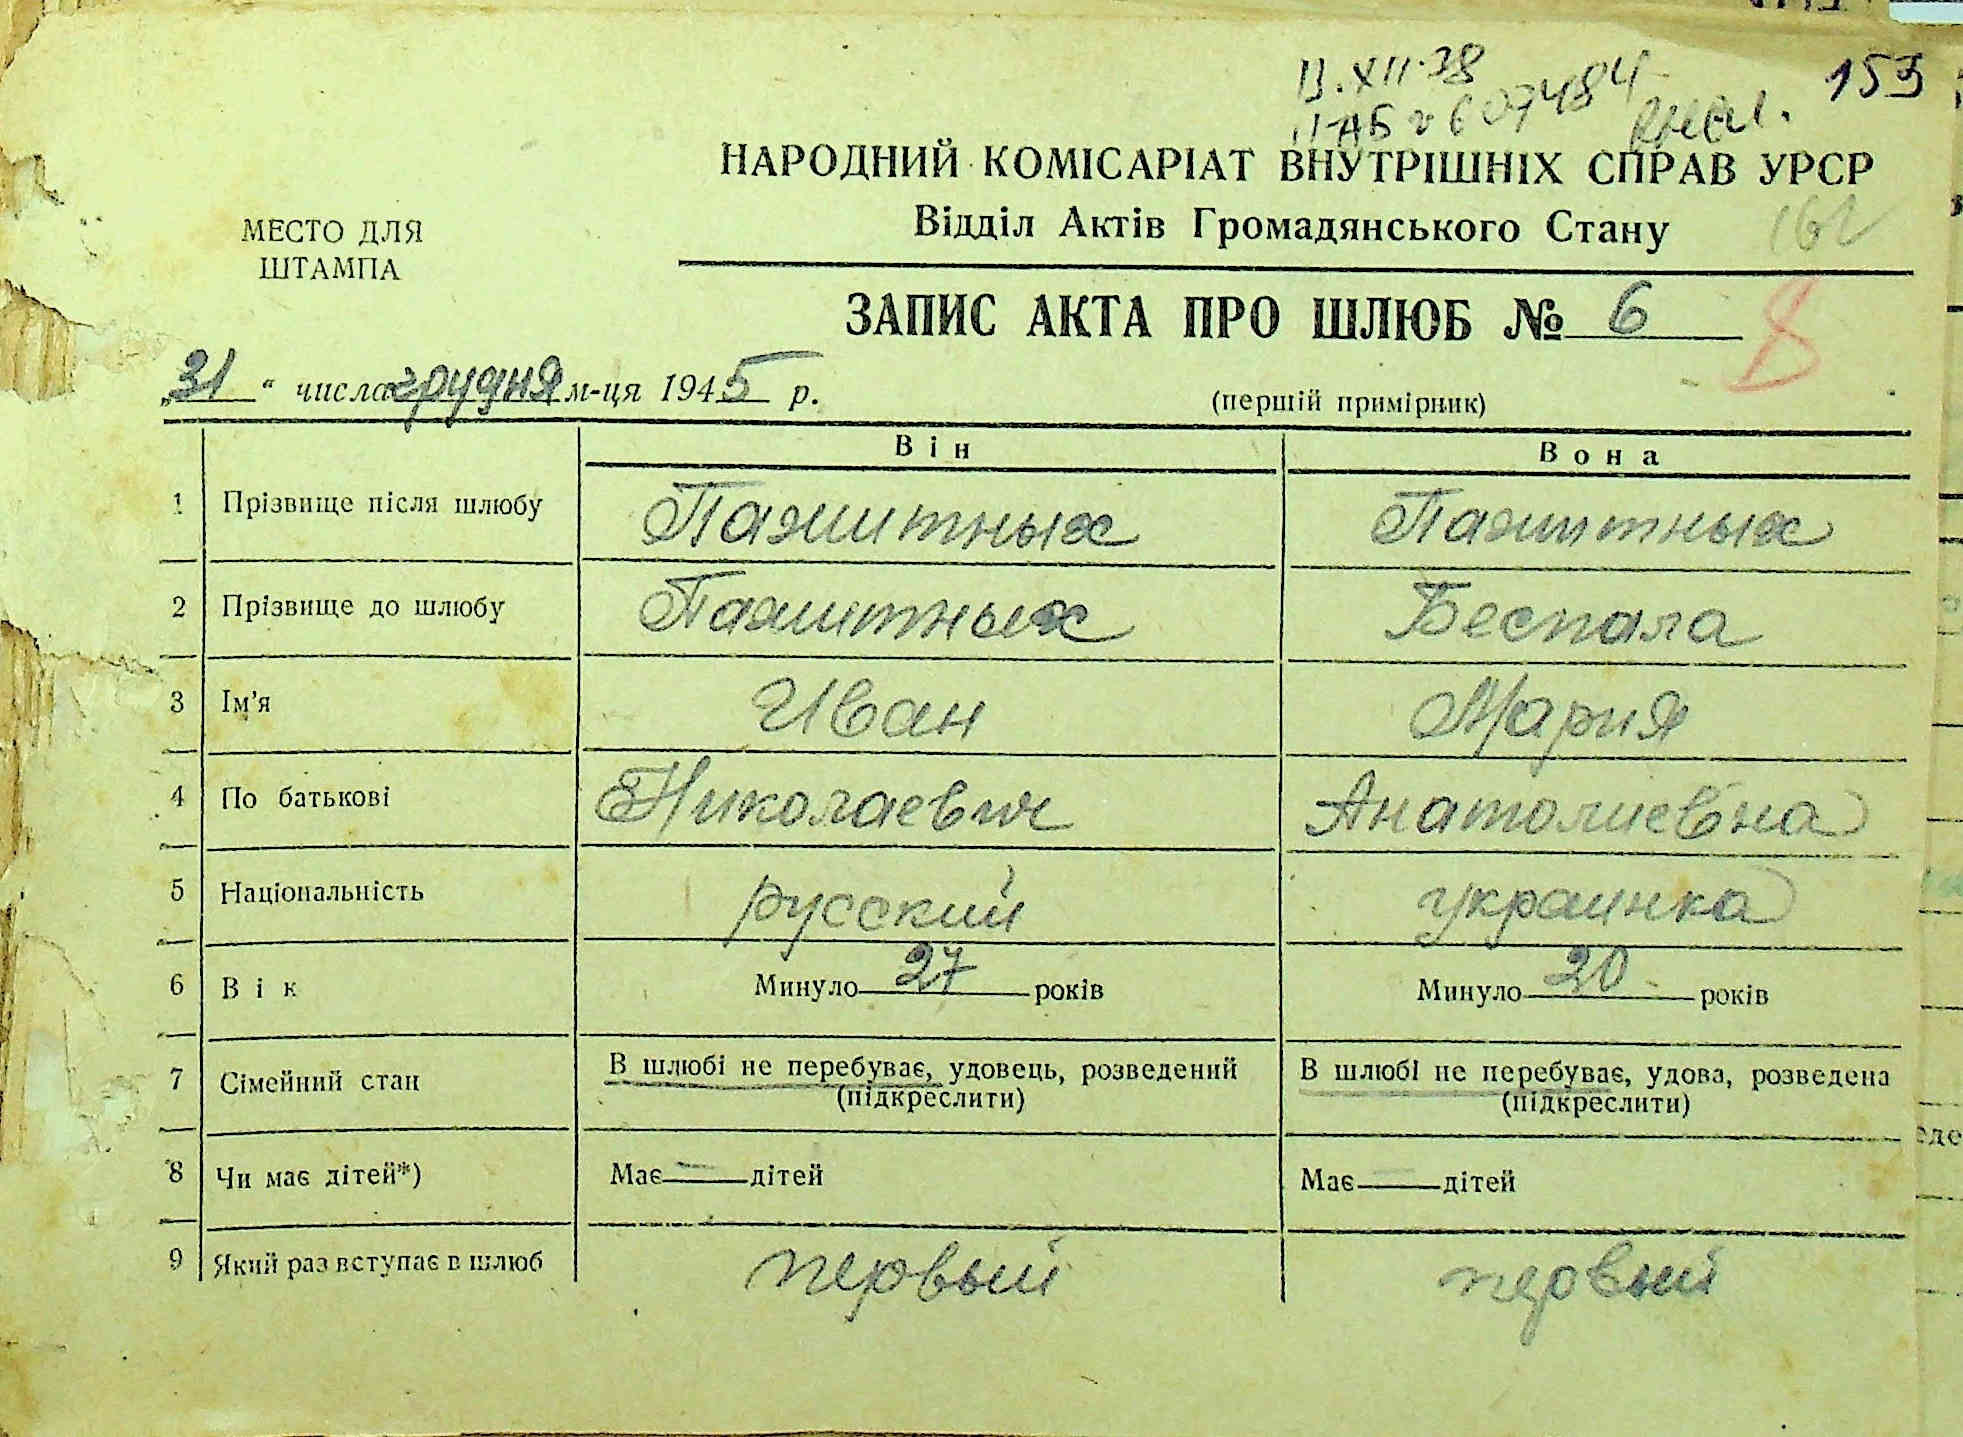 153
НАРОДНИЙ КОМІСАРІАТ ВНУТРІШНІХ СПРАВ УРСР
Відділ Актів Громадянського Стану
МЕСТО ДЛЯ
ШТАМПА
ЗАПИС АКТА ПРО ШЛЮБ № 6
„31“ числа грудня м-ця 1945 р.
(перший примірник)
Він Вона
1 Прізвище після шлюбу Пажитных Пажитных
2 Прізвище до шлюбу Пажитных Беспала
3 Ім'я Иван Мария
4 По батькові Николаевич Анатолиевна
5 Національність русский украинка
6 Вік Минуло 27 років Минуло 20 років
7 Сімейний стан В шлюбі не перебуває, удовець, розведений (підкреслити) В шлюбі не перебуває, удова, розведена (підкреслити)
8 Чи має дітей*) Має — дітей Має — дітей
9 Який раз вступає в шлюб первый первый